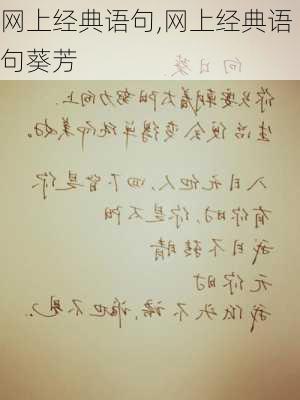 网上经典语句,网上经典语
句葵芳
向日葵.
你只要朝着太阳努力向上
生活便会变得单纯而美好。
入目无他人,四下皆是你
有你时,你是太阳
我目不转睛
无你时
我低头不语,谁也不见.